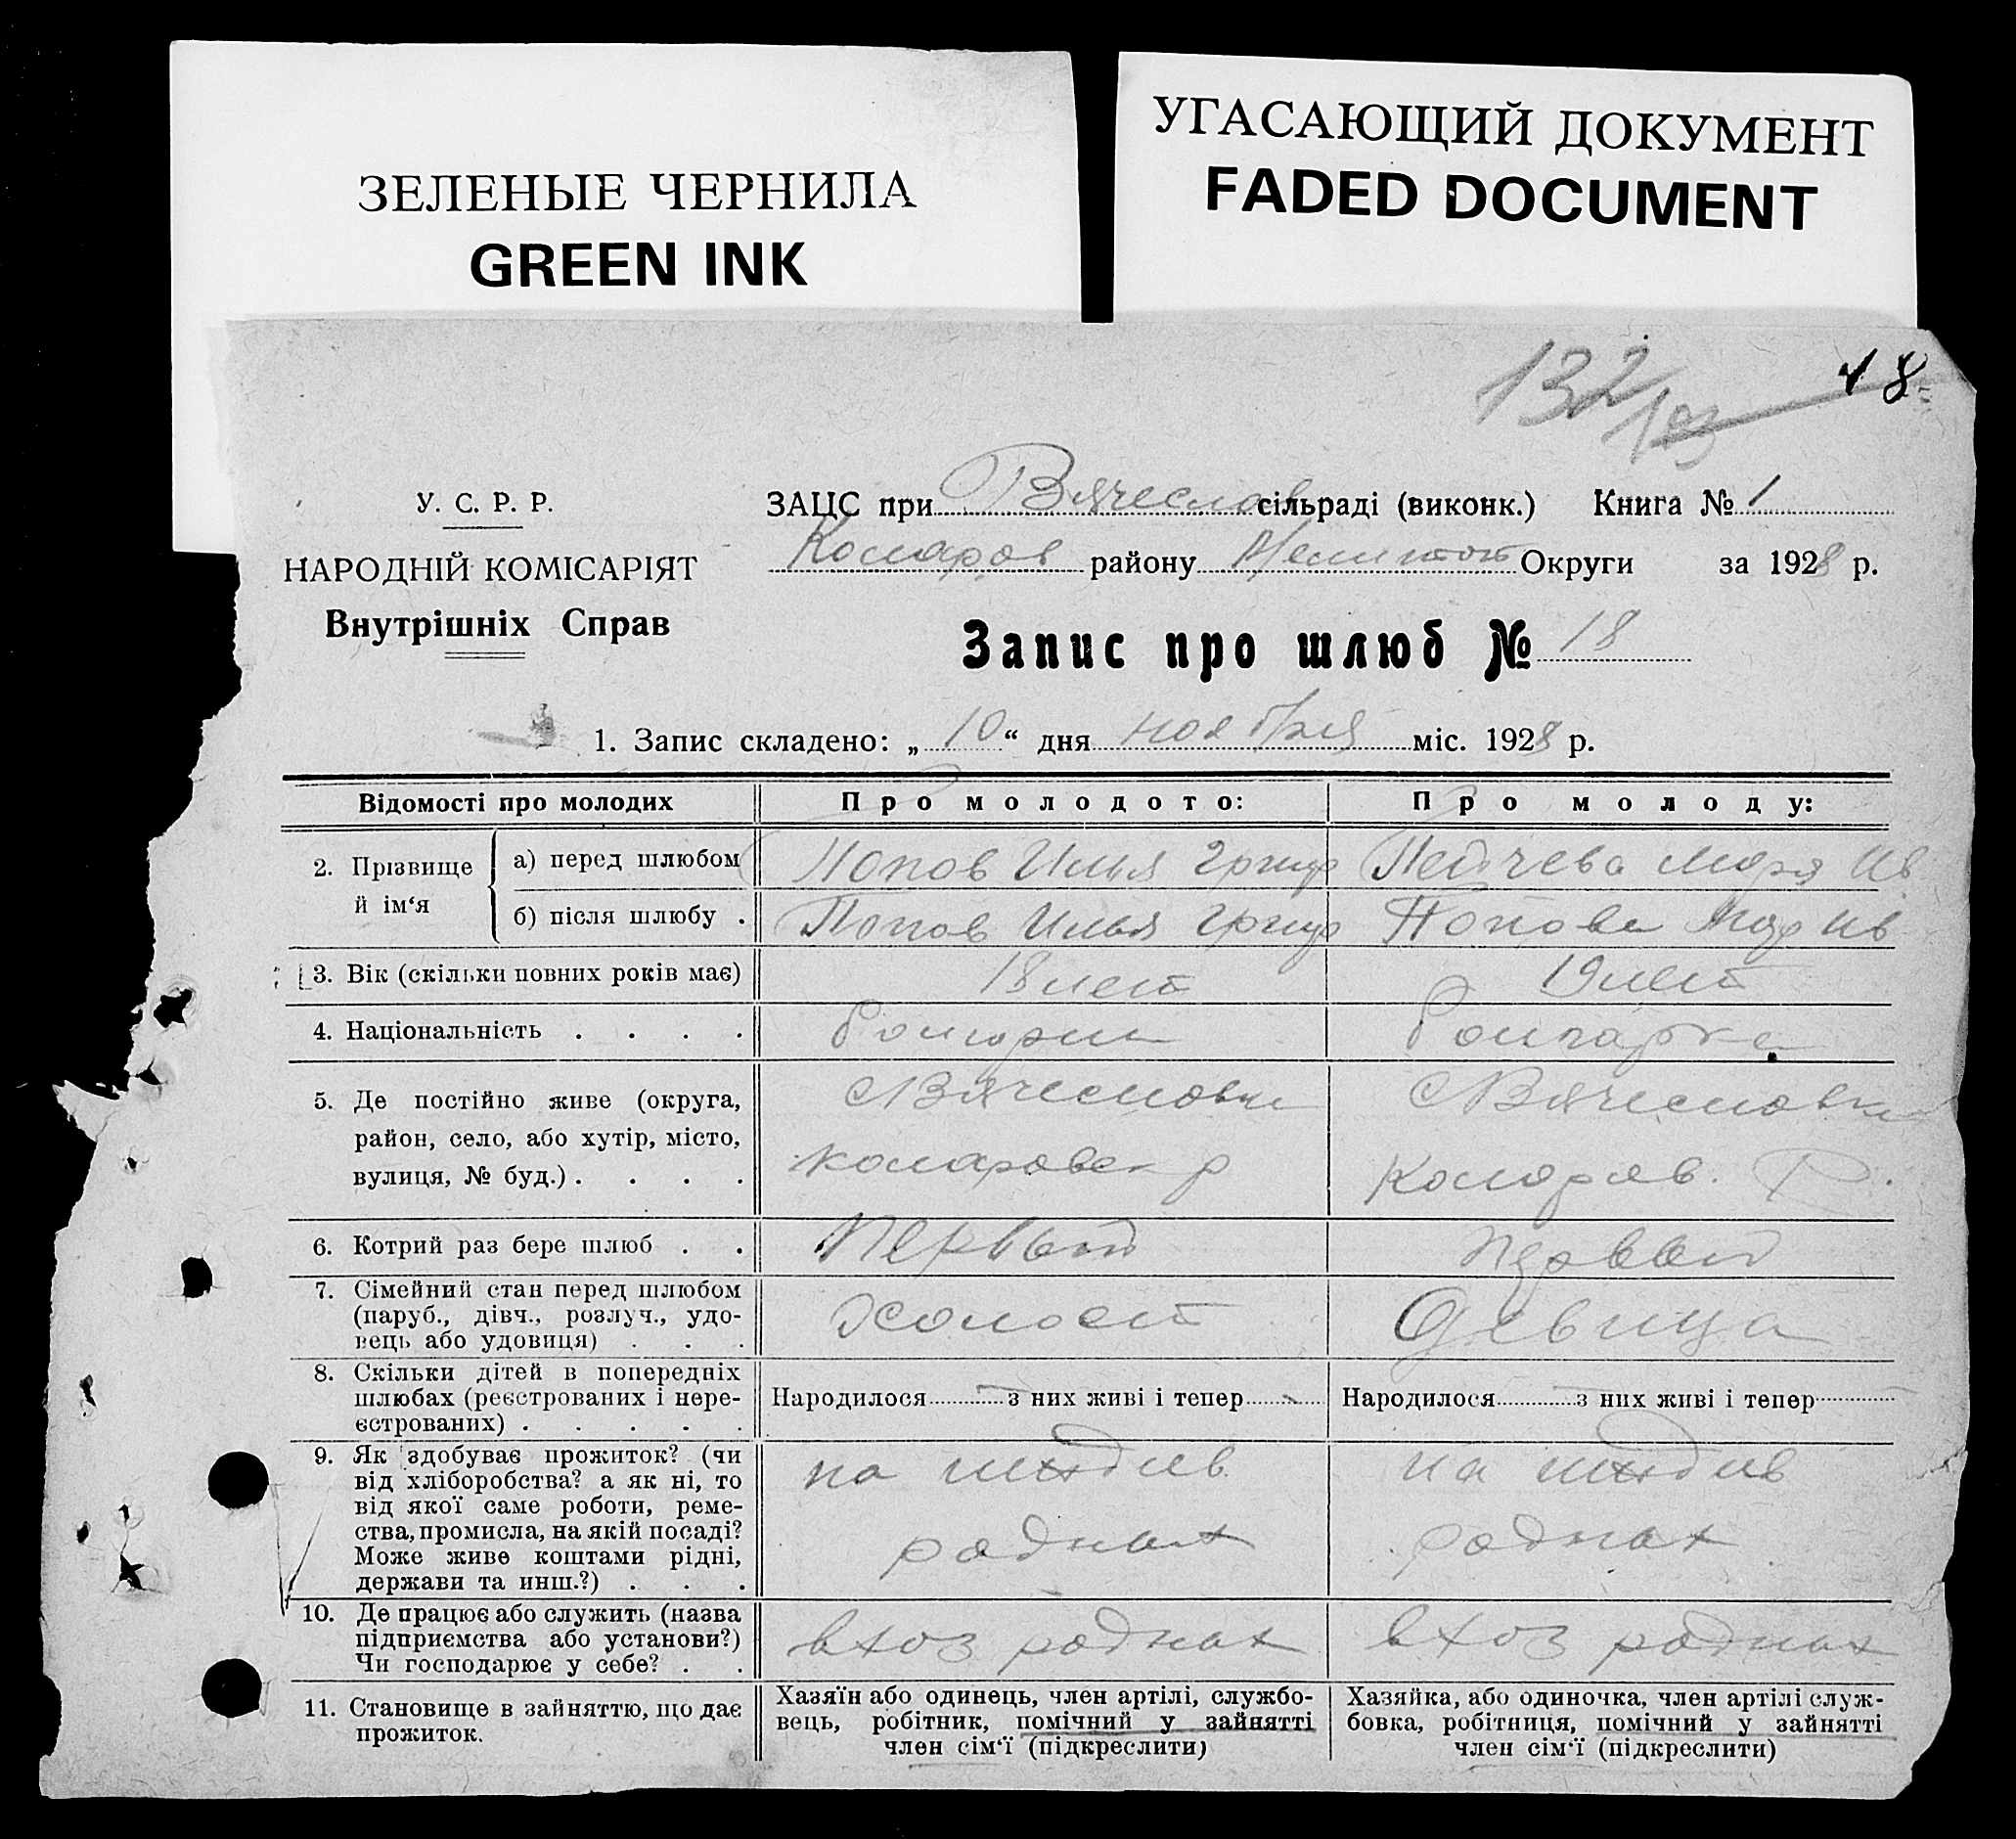 ЗЕЛЕНЫЕ ЧЕРНИЛА
GREEN INK
УГАСАЮЩИЙ ДОКУМЕНТ
FADED DOCUMENT
132/103
18
У. С. Р. Р.
НАРОДНІЙ КОМІСАРІЯТ
Внутрішніх Справ
ЗАЦС при Вячеслав сільраді (виконк.) Книга № 1
Коларов району Мелитоп Округи за 1928 р.
Запис про шлюб № 18
1. Запис складено: „10“ дня ноября міс. 1928 р.
Відомості про молодих
Про молодого:
Про молоду:
2. Прізвище й ім‘я
а) перед шлюбом
Попов Илья Григ
Пейчева Моря Ив
б) після шлюбу .
Попов Илья Григ
Попова Мар Ив
3. Вік (скільки повних років має)
18 лет
19 лет
4. Національність . . . .
болгорин
болгарка
5. Де постійно живе (округа,
район, село, або хутір, місто,
вулиця, № буд.) . . . .
с Вячесловка
коларовск р
с Вячесловка
Коларов. Р.
6. Котрий раз бере шлюб . .
Первый
Первый
7. Сімейний стан перед шлюбом
(паруб., дівч., розлуч., удо-
вець або удовиця) . . .
Холост
Девица
8. Скільки дітей в попередніх
шлюбах (реєстрованих і нере-
єстрованих) . . . . .
Народилося з них живі і тепер
Народилося з них живі і тепер
9. Як здобуває прожиток? (чи
від хліборобства? а як ні, то
від якої саме роботи, реме-
ства, промисла, на якій посаді?
Може живе коштами рідні,
держави та инш.?) . . .
на иждив
родных
на иждив
родных
10. Де працює або служить (назва
підприємства або установи?)
Чи господарює у себе? . .
в хоз родных
в хоз родных
11. Становище в зайняттю, що дає
прожиток.
Хазяїн або одинець, член артілі, службо-
вець, робітник, помічний у зайнятті
член сім‘ї (підкреслити)
Хазяйка, або одиночка, член артілі служ-
бовка, робітниця, помічний у зайнятті
член сім‘ї (підкреслити)